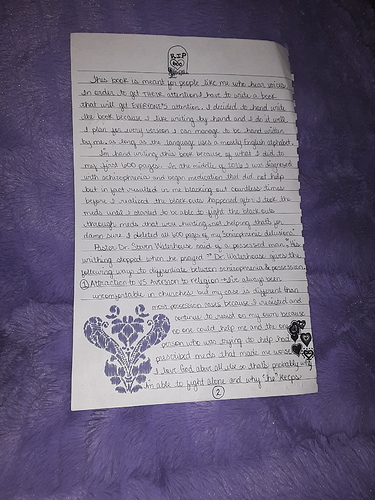 R.I.P
This book is meant for people like me who hear voices.
In order to get THEIR attention I have to write a book
that will get EVERYONE'S attention. I decided to hand write
the book because I like writing by hand and I do it well.
I plan for every version I can manage to be hand written
by me, as long as the language uses a mostly English alphabet.
I'm hand writing this book because of what I did to
my first 600 pages. In the middle of I was diagnosed
with schizophrenia and began medication that did not help
but in fact resulted in me blacking out countless times
before I realized the black outs happened after I took the
meds until I started to be able to fight the black outs
through meds that were hurting, not helping. that's for
damn sure. I deleted all 600 pages of my "schizophrenic delusions".
Pastor Dr. Steven Waterhouse said of a possessed man, "his
writhing stopped when he prayed." Dr. Waterhouse gives the
following ways to differentiate between schizophrenia & possession.
① Attraction to VS Aversion to religion - I've always been
uncomfortable in churches but my case is different than
most possession cases because I resisted and
continue to resist on my own because
no one could help me and the
person who was trying to help had
prescribed meds that made me worse.
I love God above all else so that's probably
I'm able to fight alone and why "he" keeps
②